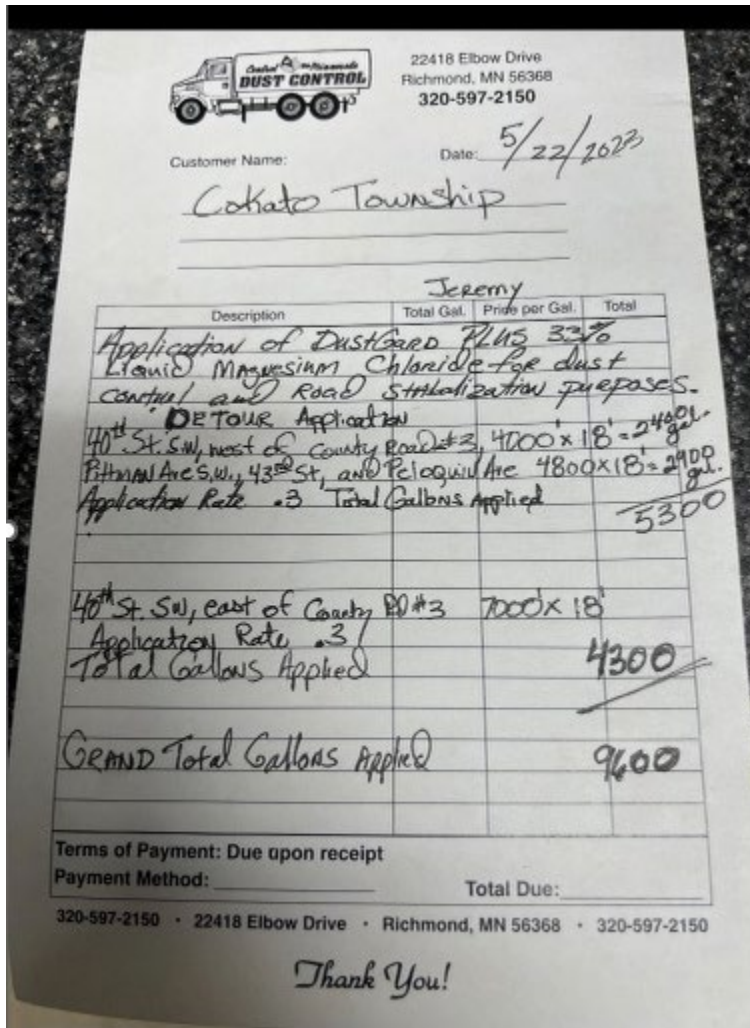 Central Minnesota
DUST CONTROL
22418 Elbow Drive
Richmond, MN 56368
320-597-2150
Customer Name:
Date: 5/22/2023
Cokato Township
Jeremy
Description Total Gal. Price per Gal. Total
Application of DustGard PLUS 33%
Liquid Magnesium Chloride for dust
control and Road stabalization purposes.
DETOUR Application
40th St. S.W, west of County Road #3, 4000' x 18' = 2400 gal.
Pittman Ave S.W., 43rd St, and Peloquin Ave 4800 x 18' = 2900 gal.
Application Rate .3 Total Gallons Applied 5300
40th St. SW, east of County RD #3 7000' x 18'
Application Rate .3
Total Gallons Applied 4300
GRAND Total Gallons Applied 9600
Terms of Payment: Due upon receipt
Payment Method:
Total Due:
320-597-2150 • 22418 Elbow Drive • Richmond, MN 56368 • 320-597-2150
Thank You!